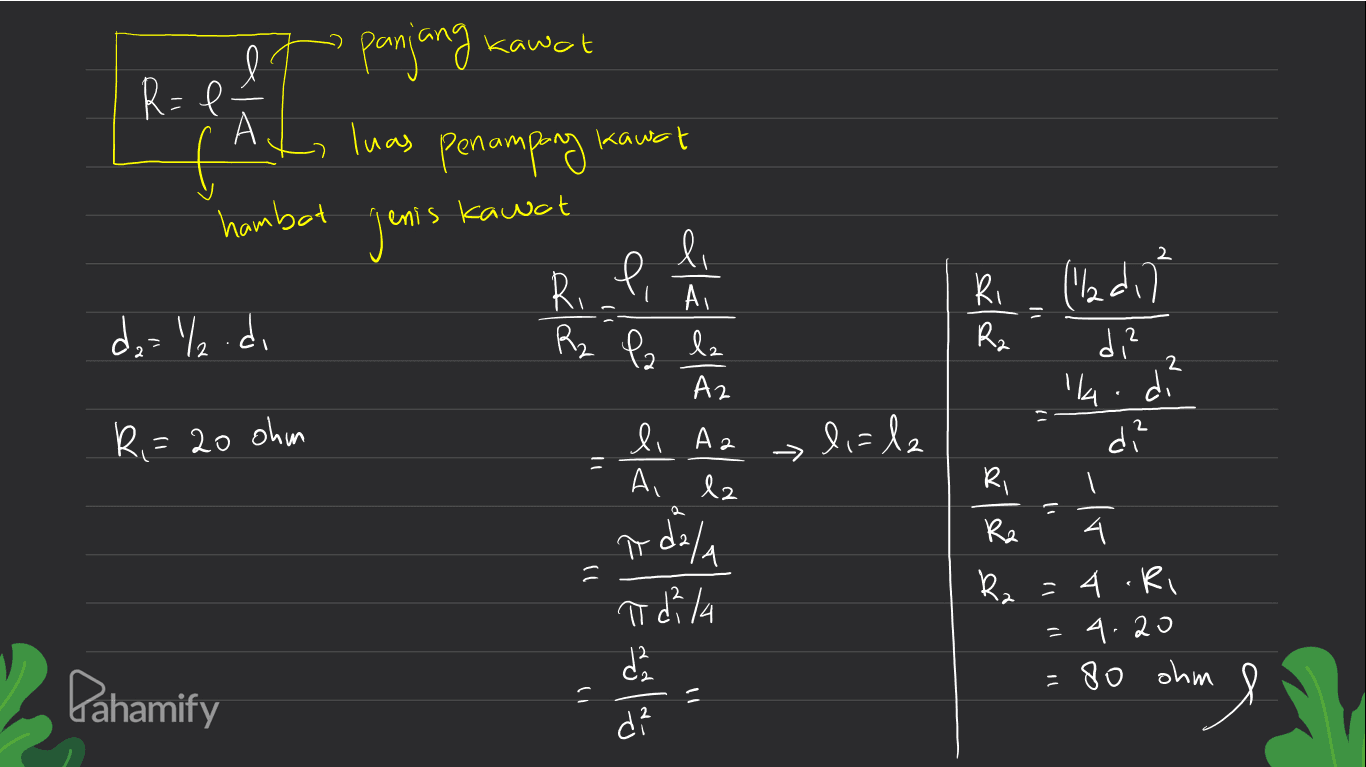 R = ρ l/A
→ panjang kawat
→ luas penampang kawat
hambat jenis kawat
d₂ = 1/2 · d₁
R₁ = 20 ohm
R₁/R₂ = (ρ₁ l₁/A₁)/(ρ₂ l₂/A₂)
= l₁/A₁ A₂/l₂ → l₁ = l₂
= (π d₂²/4)/(π d₁²/4)
= d₂²/d₁² =
R₁/R₂ = (1/2 d₁)²/d₁²
= 1/4 · d₁²/d₁²
R₁/R₂ = 1/4
R₂ = 4 · R₁
= 4 · 20
= 80 ohm
Pahamify